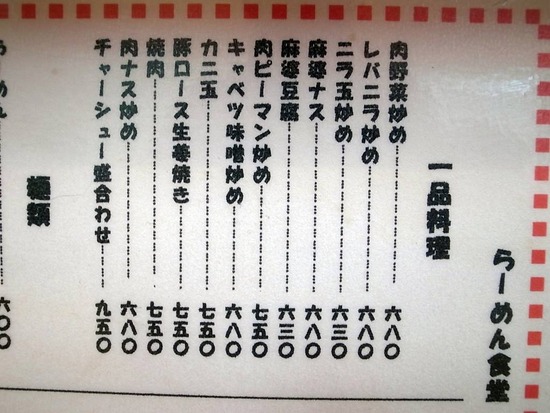 らーめん食堂
一品料理
肉野菜炒め……六八〇
レバニラ炒め……六八〇
ニラ玉炒め……六三〇
麻婆ナス……六八〇
麻婆豆腐……六三〇
肉ピーマン炒め……七五〇
キャベツ味噌炒め……六八〇
カニ玉……七五〇
豚ロース生姜焼き……七五〇
焼肉……七五〇
肉ナス炒め……六八〇
チャーシュー盛合わせ……九五〇
麺類
らーめん……六〇〇